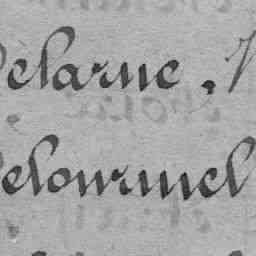 Delarue, 
Delourmel